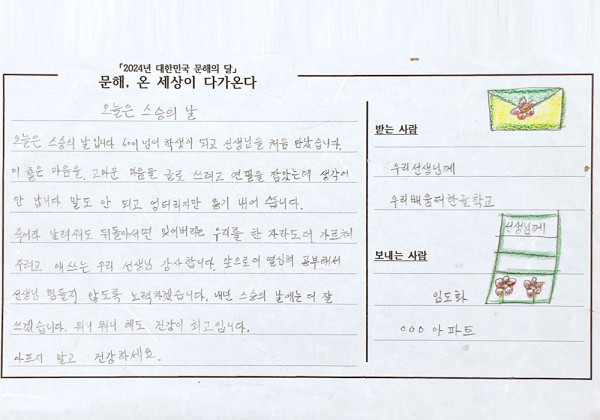 「2024년 대한민국 문해의 달」
문해, 온 세상이 다가온다
오늘은 스승의 날
오늘은 스승의 날입니다. 60이 넘어 학생이 되고 선생님을 처음 만났습니다.
이 좋은 마음을, 고마운 마음을 글로 쓰려고 연필을 잡았는데 생각이
안 납니다. 말도 안 되고 엉터리지만 용기 내어 씁니다.
주어라 알려줘도 뒤돌아서면 잊어버리는 우리를 한 자라도 더 가르쳐
주려고 애쓰는 우리 선생님 감사합니다. 앞으로 더 열심히 공부해서
선생님 힘들지 않도록 노력하겠습니다. 내년 스승의 날에는 더 잘
쓰겠습니다. 뭐니 뭐니 해도 건강이 최고입니다.
아프지 말고 건강하세요.
받는 사람
우리선생님께
우리배움터한글학교
선생님께
보내는 사람
임도화
ㅇㅇㅇ 아파트